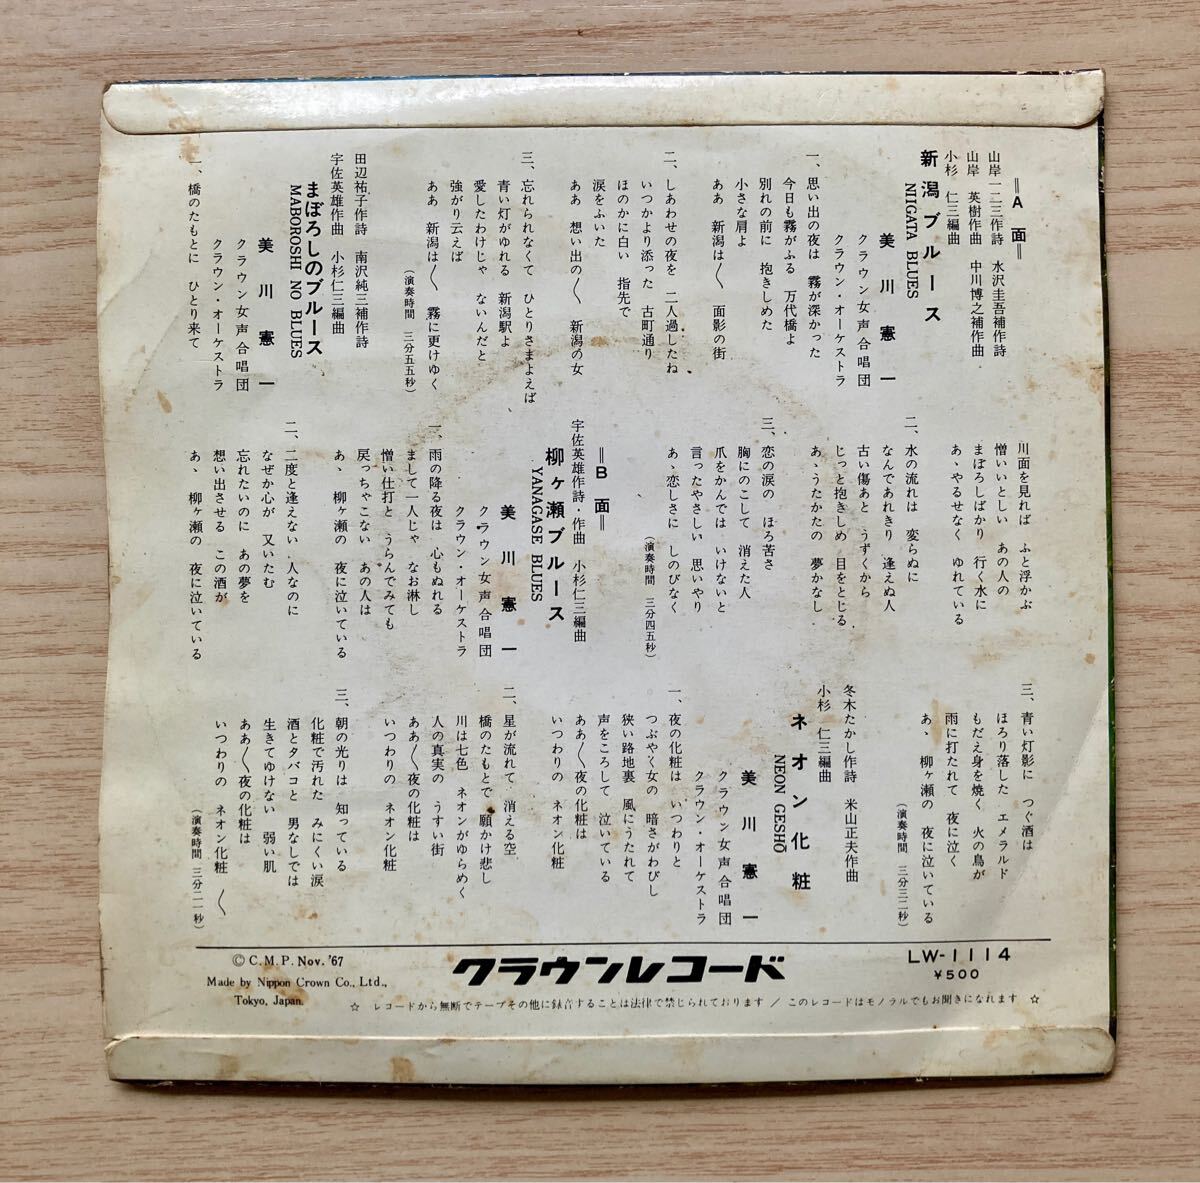 ‖A 面‖
山岸一二三作詩 水沢圭吾補作詩
山岸 英樹作曲 中川博之補作曲
小杉 仁三編曲
新潟ブルース
NIIGATA BLUES
美川憲一
クラウン女声合唱団
クラウン・オーケストラ
一、思い出の夜は 霧が深かった
今日も霧がふる 万代橋よ
別れの前に 抱きしめた
小さな肩よ
ああ 新潟は〱 面影の街
二、しあわせの夜を 二人過したね
いつかより添った 古町通り
ほのかに白い 指先で
涙をふいた
ああ 想い出の〱 新潟の女
三、忘れられなくて ひとりさまよえば
青い灯がゆれる 新潟駅よ
愛したわけじゃ ないんだと
強がり云えば
ああ 新潟は〱 霧に更けゆく
(演奏時間 三分五五秒)
田辺祐子作詩 南沢純三補作詩
宇佐英雄作曲 小杉仁三編曲
まぼろしのブルース
MABOROSHI NO BLUES
美川憲一
クラウン女声合唱団
クラウン・オーケストラ
一、橋のたもとに ひとり来て
川面を見れば ふと浮かぶ
憎いいとしい あの人の
まぼろしばかり 行く水に
あゝやるせなく ゆれている
二、水の流れは 変らぬに
なんであれきり 逢えぬ人
古い傷あと うずくから
じっと抱きしめ 目をとじる
あゝうたかたの 夢かなし
三、恋の涙の ほろ苦さ
胸にのこして 消えた人
爪をかんでは いけないと
言ったやさしい 思いやり
あゝ恋しさに しのびなく
(演奏時間 三分四五秒)
‖B 面‖
宇佐英雄作詩・作曲 小杉仁三編曲
柳ヶ瀬ブルース
YANAGASE BLUES
美川憲一
クラウン女声合唱団
クラウン・オーケストラ
一、雨の降る夜は 心もぬれる
まして一人じゃ なお淋し
憎い仕打と うらんでみても
戻っちゃこない あの人は
あゝ 柳ヶ瀬の 夜に泣いている
二、二度と逢えない 人なのに
なぜか心が 又いたむ
忘れたいのに あの夢を
想い出させる この酒が
あゝ 柳ヶ瀬の 夜に泣いている
三、青い灯影に つぐ酒は
ほろり落した エメラルド
もだえ身を焼く 火の鳥が
雨に打たれて 夜に泣く
あゝ 柳ヶ瀬の 夜に泣いている
(演奏時間 三分三二秒)
冬木たかし作詩 米山正夫作曲
小杉 仁三編曲
ネオン化粧
NEON GESHŌ
美川憲一
クラウン女声合唱団
クラウン・オーケストラ
一、夜の化粧は いつわりと
つぶやく女の 暗さがわびし
狭い路地裏 風にうたれて
声をころして 泣いている
ああ〱夜の化粧は
いつわりの ネオン化粧
二、星が流れて 消える空
橋のたもとで 願かけ悲し
川は七色 ネオンがゆらめく
人の真実の うすい街
ああ〱夜の化粧は
いつわりの ネオン化粧
三、朝の光りは 知っている
化粧で汚れた みにくい涙
酒とタバコと 男なしでは
生きてゆけない 弱い肌
ああ〱夜の化粧は
いつわりの ネオン化粧 〱
(演奏時間 三分二一秒)
©C.M.P. Nov. '67
Made by Nippon Crown Co., Ltd.,
Tokyo, Japan.
クラウンレコード
LW-1114
¥500
☆ レコードから無断でテープその他に録音することは法律で禁じられております / このレコードはモノラルでもお聞きになれます ☆